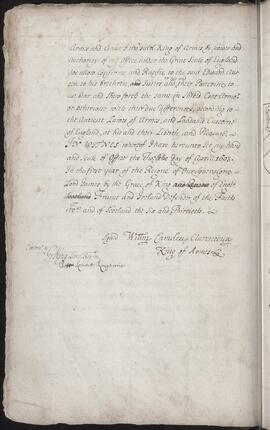 Armes and Crest I the said King of Armes, by power and
Authority of my Office under the Great Seale of England
doe allow Confirme and Ratifie to the said Edward
to his brethren and Sisters and their Posterity to
use Bear and Shew forth the same in Shield Coat Armor
or otherwise with their due Differences, according to
the Antient Lawes of Armes, and Laudable Customs
of England, at his and their Libertie and Pleasure
IN WITNES whereof I have hereunto set my hand
and Seale of Office the day of April 1603.
In the first year of the Reigne of our Soveraigne
Lord James by the Grace of King of England
France and Ireland Defendor of the Faith
&c. and of Scotland the Six and Thirtieth.
Willm Camden Clarenceux
King of Armes